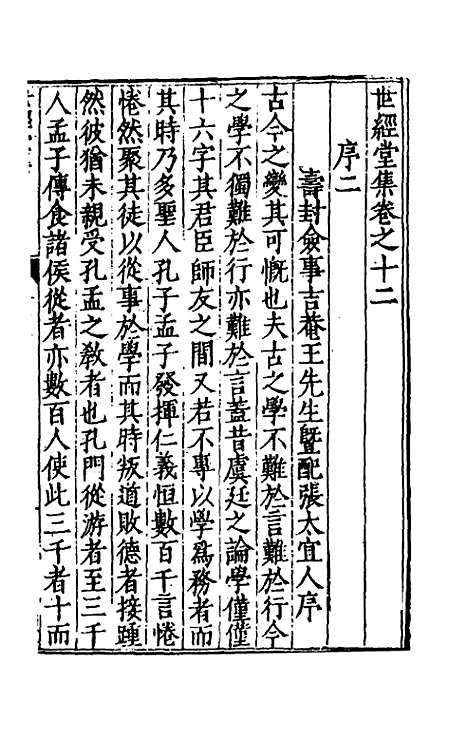 世經堂集卷之十二
序二
壽封僉事吉菴王先生暨配張太宜人序
古今之變其可慨也夫古之學不難於言難於行今
之學不獨難於行亦難於言蓋昔虞廷之論學僅僅
十六字其君臣師友之間又若不專以學爲務者而
其時乃多聖人孔子孟子發揮仁義恒數百千言惓
惓然聚其徒以從事於學而其時叛道敗德者接踵
然彼猶未親受孔孟之敎者也孔門從游者至三千
人孟子傳食諸侯從者亦數百人使此三千者十而